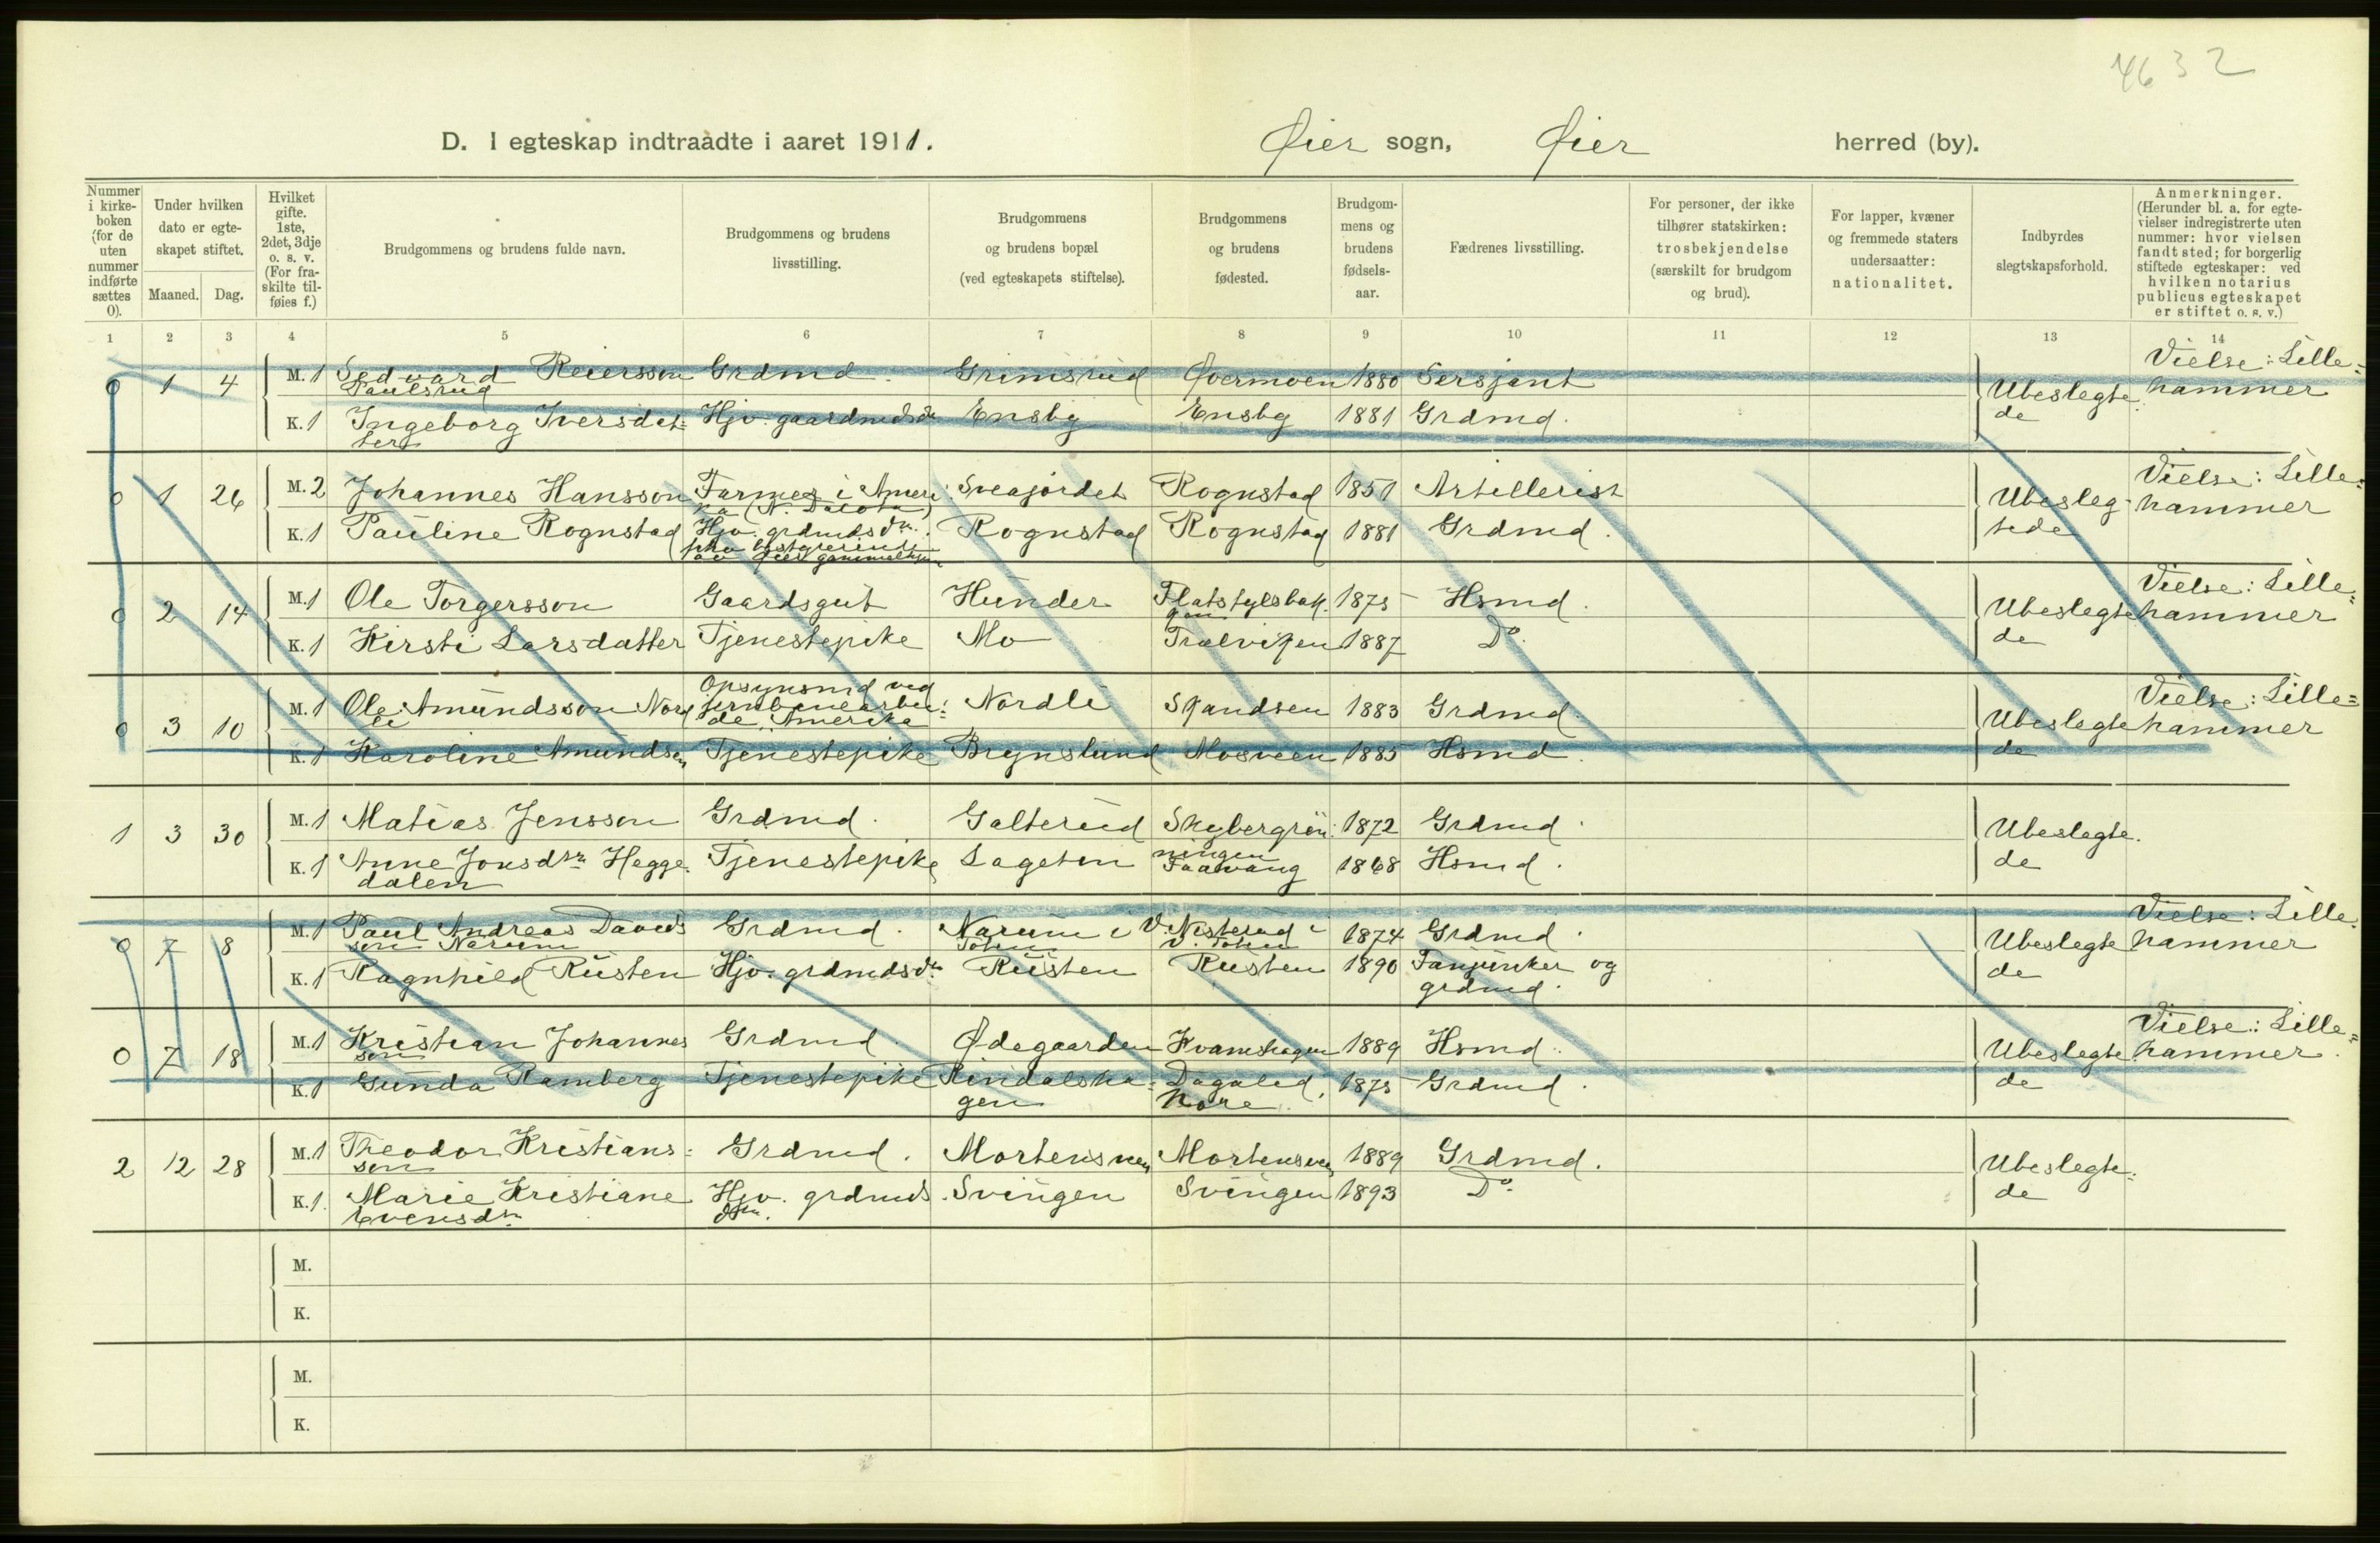 4632
D. I egteskap indtraadte i aaret 1911. Øier sogn, Øier herred (by).
Nummer i kirkeboken (for de uten nummer indførte sættes 0).
Under hvilken dato er egteskapet stiftet.
Maaned. Dag.
Hvilket gifte. 1ste, 2det, 3dje o. s. v. (For fraskilte tilføies f.)
Brudgommens og brudens fulde navn.
Brudgommens og brudens livsstilling.
Brudgommens og brudens bopæl (ved egteskapets stiftelse).
Brudgommens og brudens fødested.
Brudgommens og brudens fødselsaar.
Fædrenes livsstilling.
For personer, der ikke tilhører statskirken: trosbekjendelse (særskilt for brudgom og brud).
For lapper, kvæner og fremmede staters undersaatter: nationalitet.
Indbyrdes slegtskapsforhold.
Anmerkninger. (Herunder bl. a. for egtevielser indregistrerte uten nummer: hvor vielsen fandt sted; for borgerlig stiftede egteskaper: ved hvilken notarius publicus egteskapet er stiftet o. s. v.)
1 2 3 4 5 6 7 8 9 10 11 12 13 14
0 1 4 M. 1 Sedvard Reiersson Paulsrud Grdmd. Grimsrud Øvermoen 1880 Sersjant Ubeslegtede Vielse: Lillehammer
K. 1 Ingeborg Iversdatter Hjv. gaardmdsdr Ensby Ensby 1881 Grdmd.
0 1 26 M. 2 Johannes Hansson Farmer i Amerika (N. Dacota) Sveajordet Rognstad 1851 Artillerist Ubeslegtede Vielse: Lillehammer
K. 1 Pauline Rognstad Hjv. grdmdsdtr. Rognstad Rognstad 1881 Grdmd.
0 2 14 M. 1 Ole Torgersson Gaardsgut Hunder Flatstylsbak. 1875 Hsmd. Ubeslegtede Vielse: Lillehammer
K. 1 Kirsti Larsdatter Tjenestepike Mo Trælviken 1887 Do.
0 3 10 M. 1 Ole Amundsson Nordli Opsynsmd ved jernbanearbeide, Amerika Nordli Skandsen 1883 Grdmd. Ubeslegtede Vielse: Lillehammer
K. 1 Karoline Amundsen Tjenestepike Brynslund Mosveen 1885 Hsmd.
1 3 30 M. 1 Matias Jensson Grdmd. Galterud Skybergrønningen 1872 Grdmd. Ubeslegtede
K. 1 Anne Jonsdtr Heggedalen Tjenestepike Lageten Faavang 1868 Hsmd.
0 7 8 M. 1 Paul Andreas Davidsson Narum Grdmd. Narum i V. Toten Nisterud i V. Toten 1874 Grdmd. Ubeslegtede Vielse: Lillehammer
K. 1 Ragnhild Rusten Hjv. grdmdsdtr Rusten Rusten 1890 Fanjunker og grdmd.
0 7 18 M. 1 Kristian Johannesson Grdmd. Ødegaarden Kvamshagen 1889 Hsmd. Ubeslegtede Vielse: Lillehammer.
K. 1 Gunda Ramberg Tjenestepike Rindalshagen 1875 Grdmd.
2 12 28 M. 1 Theodor Kristiansson Grdmd. Mortensveen Mortensveen 1889 Grdmd. Ubeslegtede
K. 1. Marie Kristiane Evensdtr Hjv. grdmdsdtr. Svingen Svingen 1893 Do.
M.
K.
M.
K.